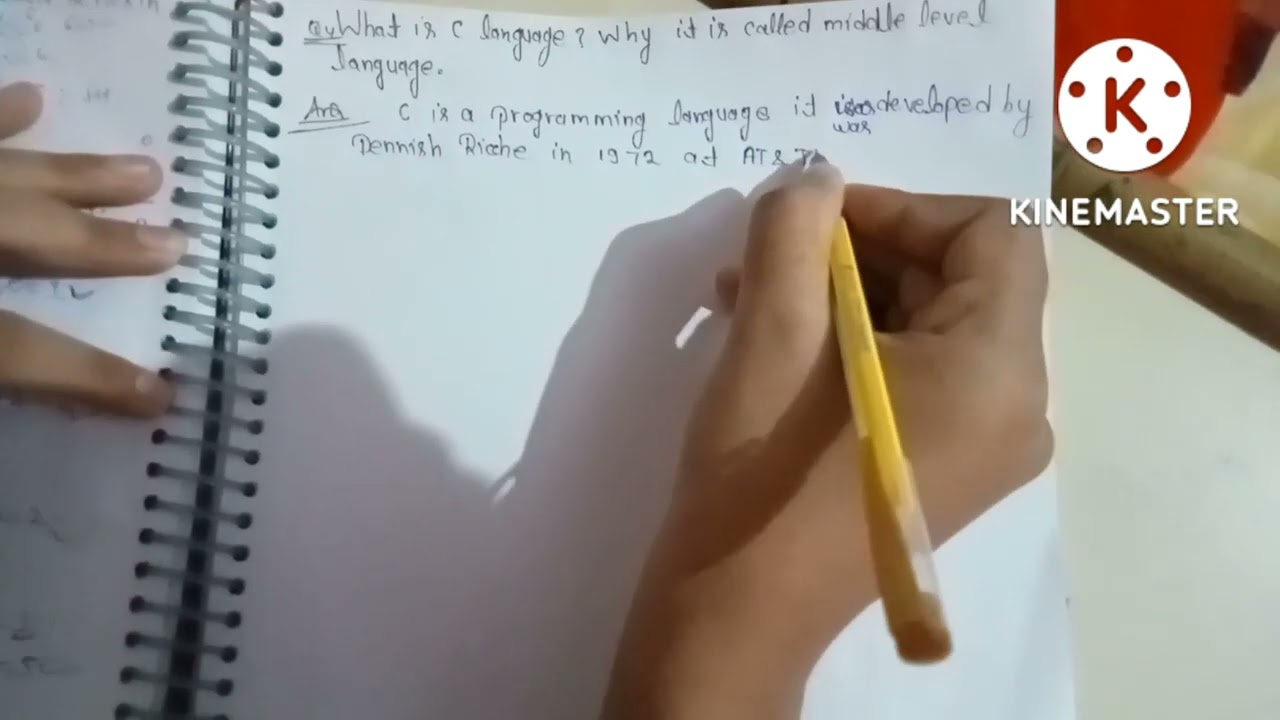 Q4 What is C language? Why it is called middle level
language.
Ans C is a programming language it was developed by
Dennish Ricche in 1972 at AT& T
K
KINEMASTER